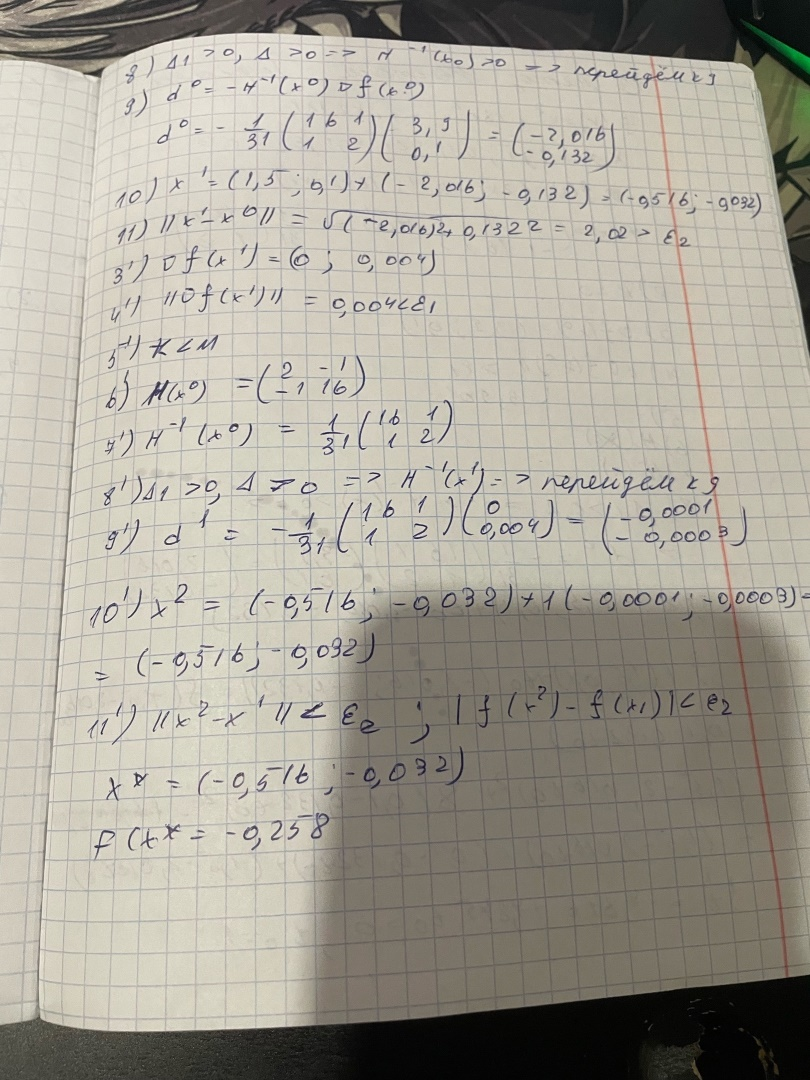 8) Δ1 > 0, Δ > 0 => H⁻¹(x0) > 0 => перейдём к 9
9) d⁰ = -H⁻¹(x⁰) ∇f(x⁰)
d⁰ = - 1/31 (16 1; 1 2) (3,9; 0,1) = (-2,016; -0,132)
10) x¹ = (1,5 ; 0,1) + (-2,016; -0,132) = (-0,516; -0,032)
11) ||x¹-x⁰|| = √(-2,016)²+ 0,132² = 2,02 > ε2
3') ∇f(x¹) = (0 ; 0,004)
4') ||∇f(x¹)|| = 0,004<ε1
5') K < M
6') H(x⁰) = (2 -1; -1 16)
7') H⁻¹(x⁰) = 1/31 (16 1; 1 2)
8') Δ1 > 0, Δ > 0 => H⁻¹(x¹) => перейдём к 9
9') d¹ = - 1/31 (16 1; 1 2) (0; 0,004) = (-0,0001; -0,0003)
10') x² = (-0,516; -0,032) + 1(-0,0001; -0,0003) =
= (-0,516; -0,032)
11') ||x²-x¹|| < ε2 ; |f(x²) - f(x1)| < ε2
x* = (-0,516 ; -0,032)
f(x* = -0,258